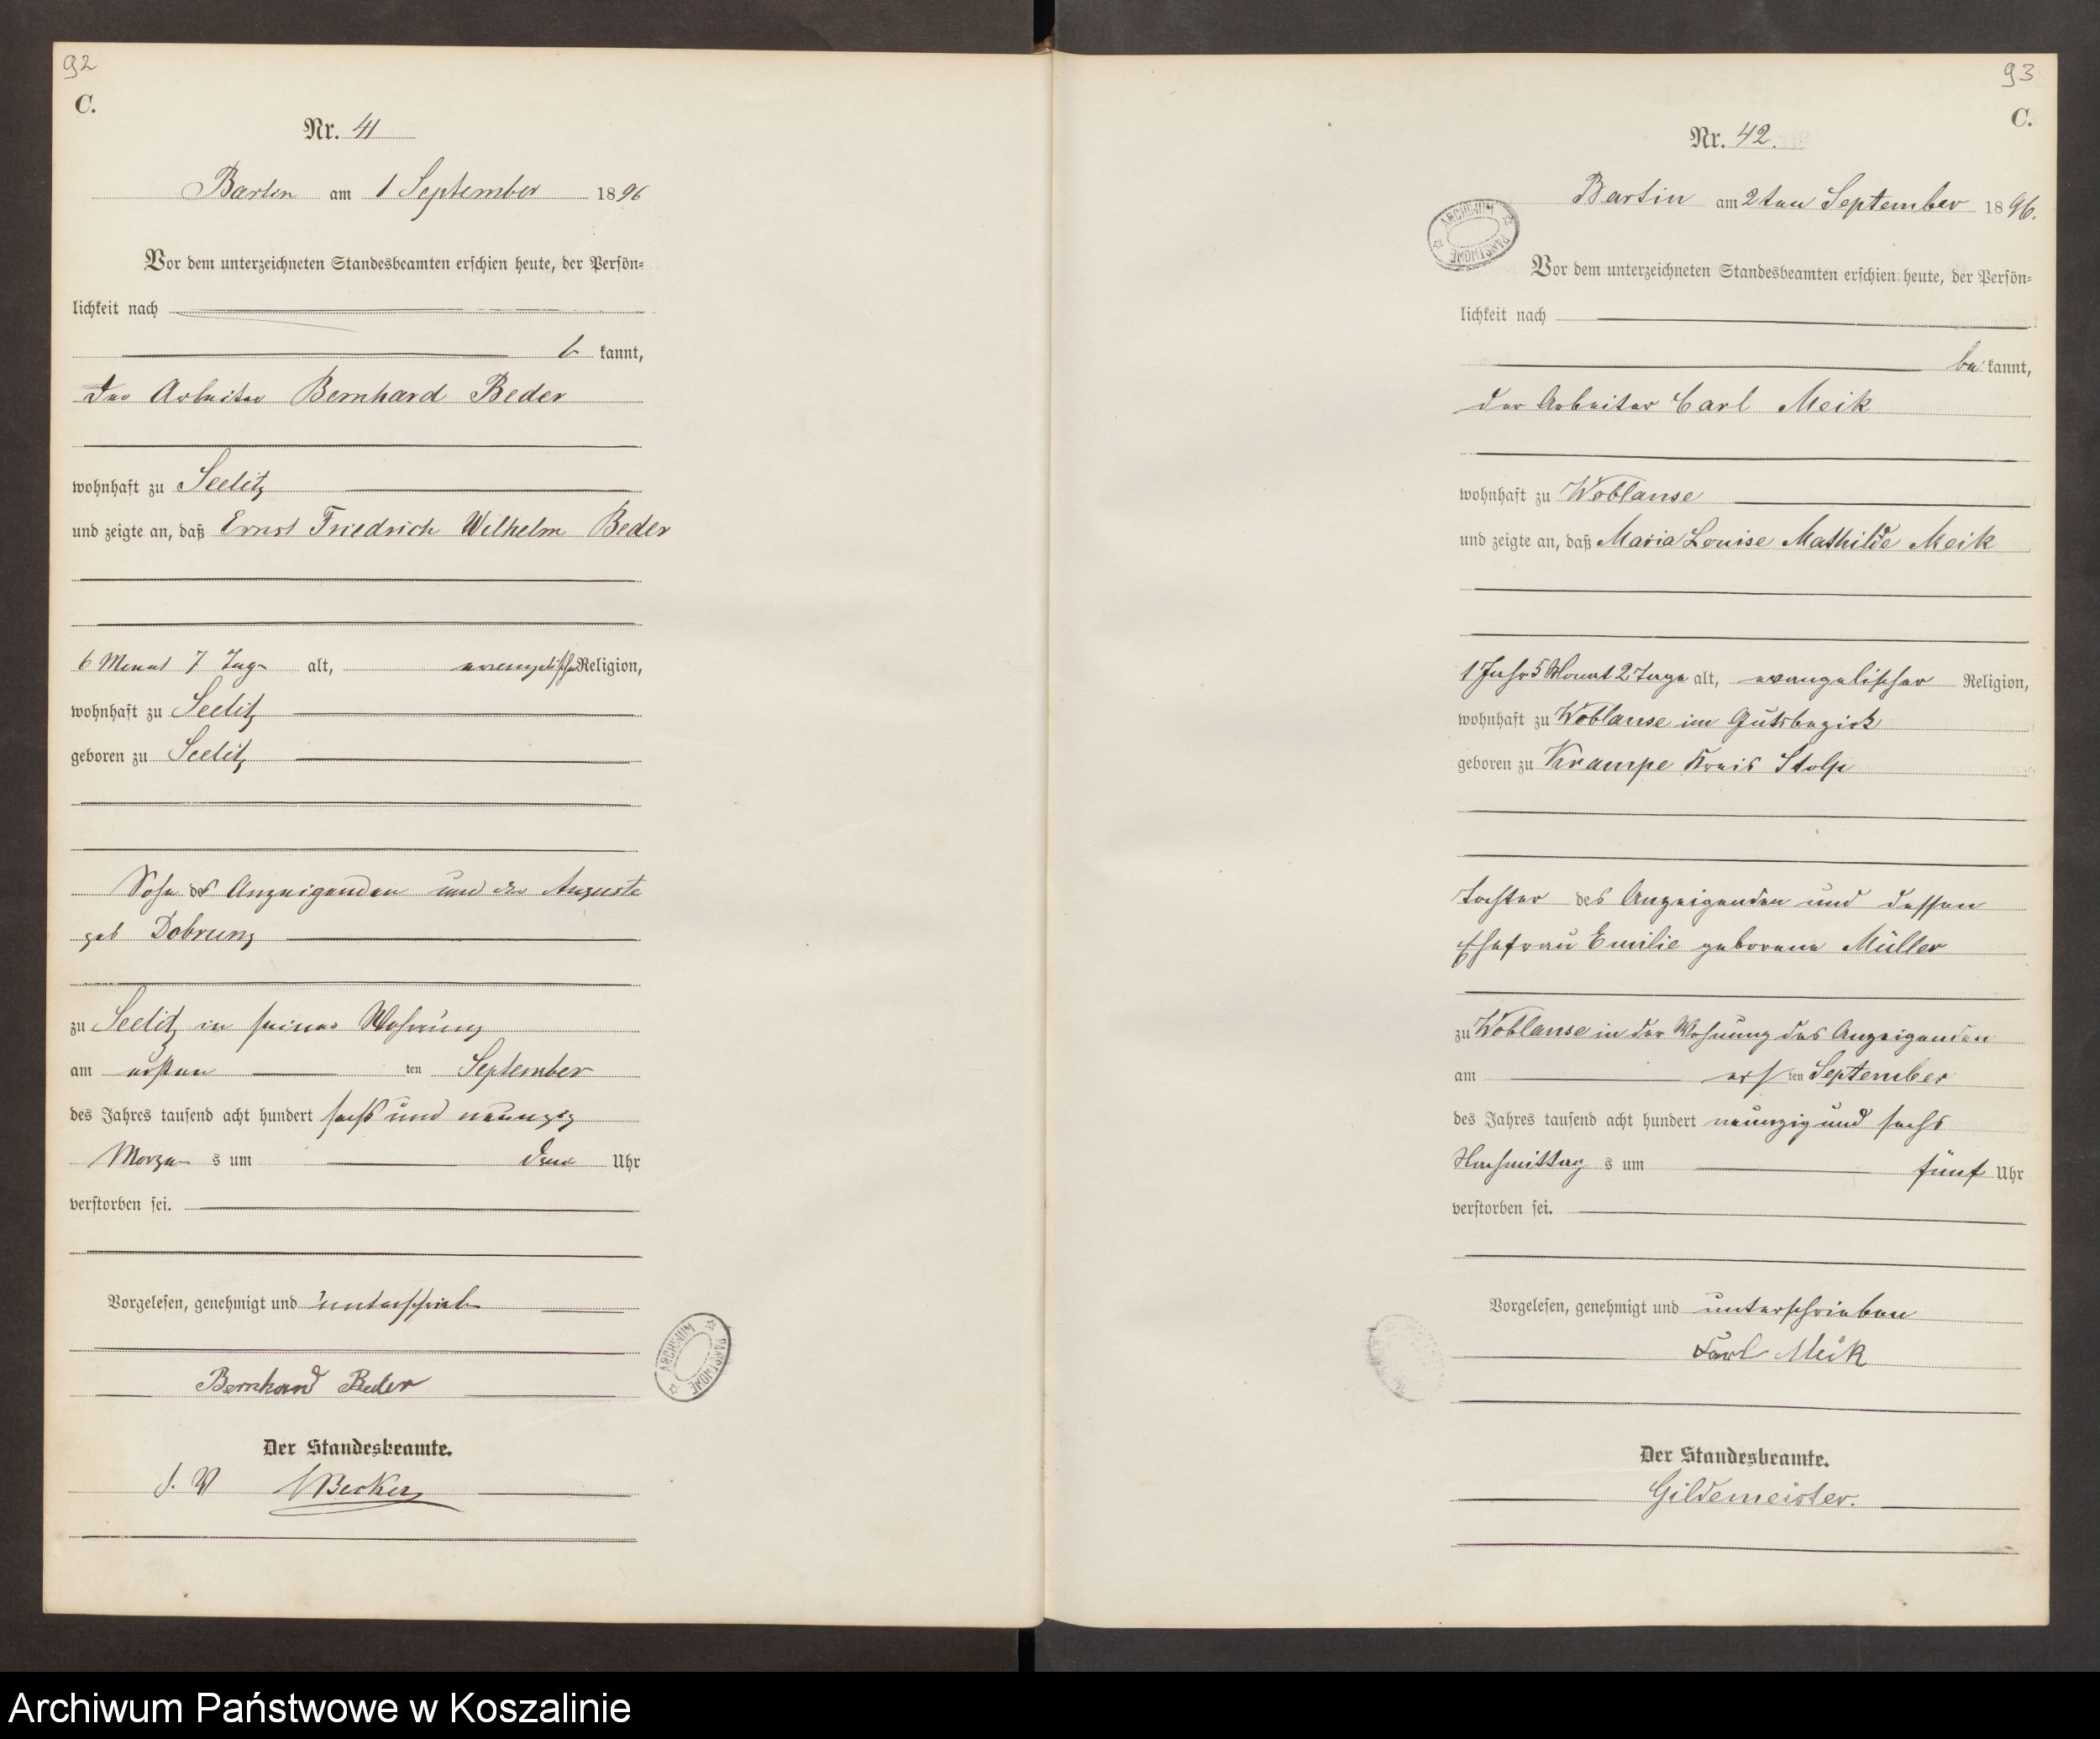 92
C.
Nr. 41
Bartin am 1 September 1896
Vor dem unterzeichneten Standesbeamten erschien heute, der Persön-
lichkeit nach
b kannt,
der Arbeiter Bernhard Beder
wohnhaft zu Seelitz
und zeigte an, daß Ernst Friedrich Wilhelm Beder
6 Monat 7 Tage alt, evangelischer Religion,
wohnhaft zu Seelitz
geboren zu Seelitz
Sohn des Anzeigenden und der Auguste
geb Dobrunz
zu Seelitz in seiner Wohnung
am ersten ten September
des Jahres tausend acht hundert sechs und neunzig
Morgen s um Uhr
verstorben sei.
Vorgelesen, genehmigt und unterschrieb
Bernhard Beder
Der Standesbeamte.
I. V Becker
93
C.
Nr. 42.
Bartin am 2ten September 1896.
ARCHIWUM PAŃSTWOWE
Vor dem unterzeichneten Standesbeamten erschien heute, der Persön-
lichkeit nach
be kannt,
der Arbeiter Carl Meik
wohnhaft zu Woblanse
und zeigte an, daß Maria Louise Mathilde Meik
1 Jahr 5 Monat 2 Tage alt, evangelischer Religion,
wohnhaft zu Woblanse im Gutsbezirk
geboren zu Krampe Kreis Stolp
Tochter des Anzeigenden und dessen
Ehefrau Emilie geborene Müller
zu Woblanse in der Wohnung des Anzeigenden
am ers ten September
des Jahres tausend acht hundert neunzig und sechs
Nachmittag s um fünf Uhr
verstorben sei.
Vorgelesen, genehmigt und unterschrieben
Carl Meik
Der Standesbeamte.
Gildemeister.
ARCHIWUM PAŃSTWOWE
Archiwum Państwowe w Koszalinie